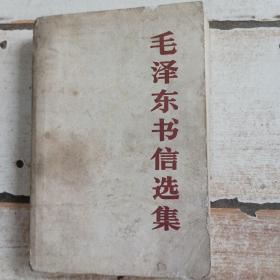 毛泽东书信选集